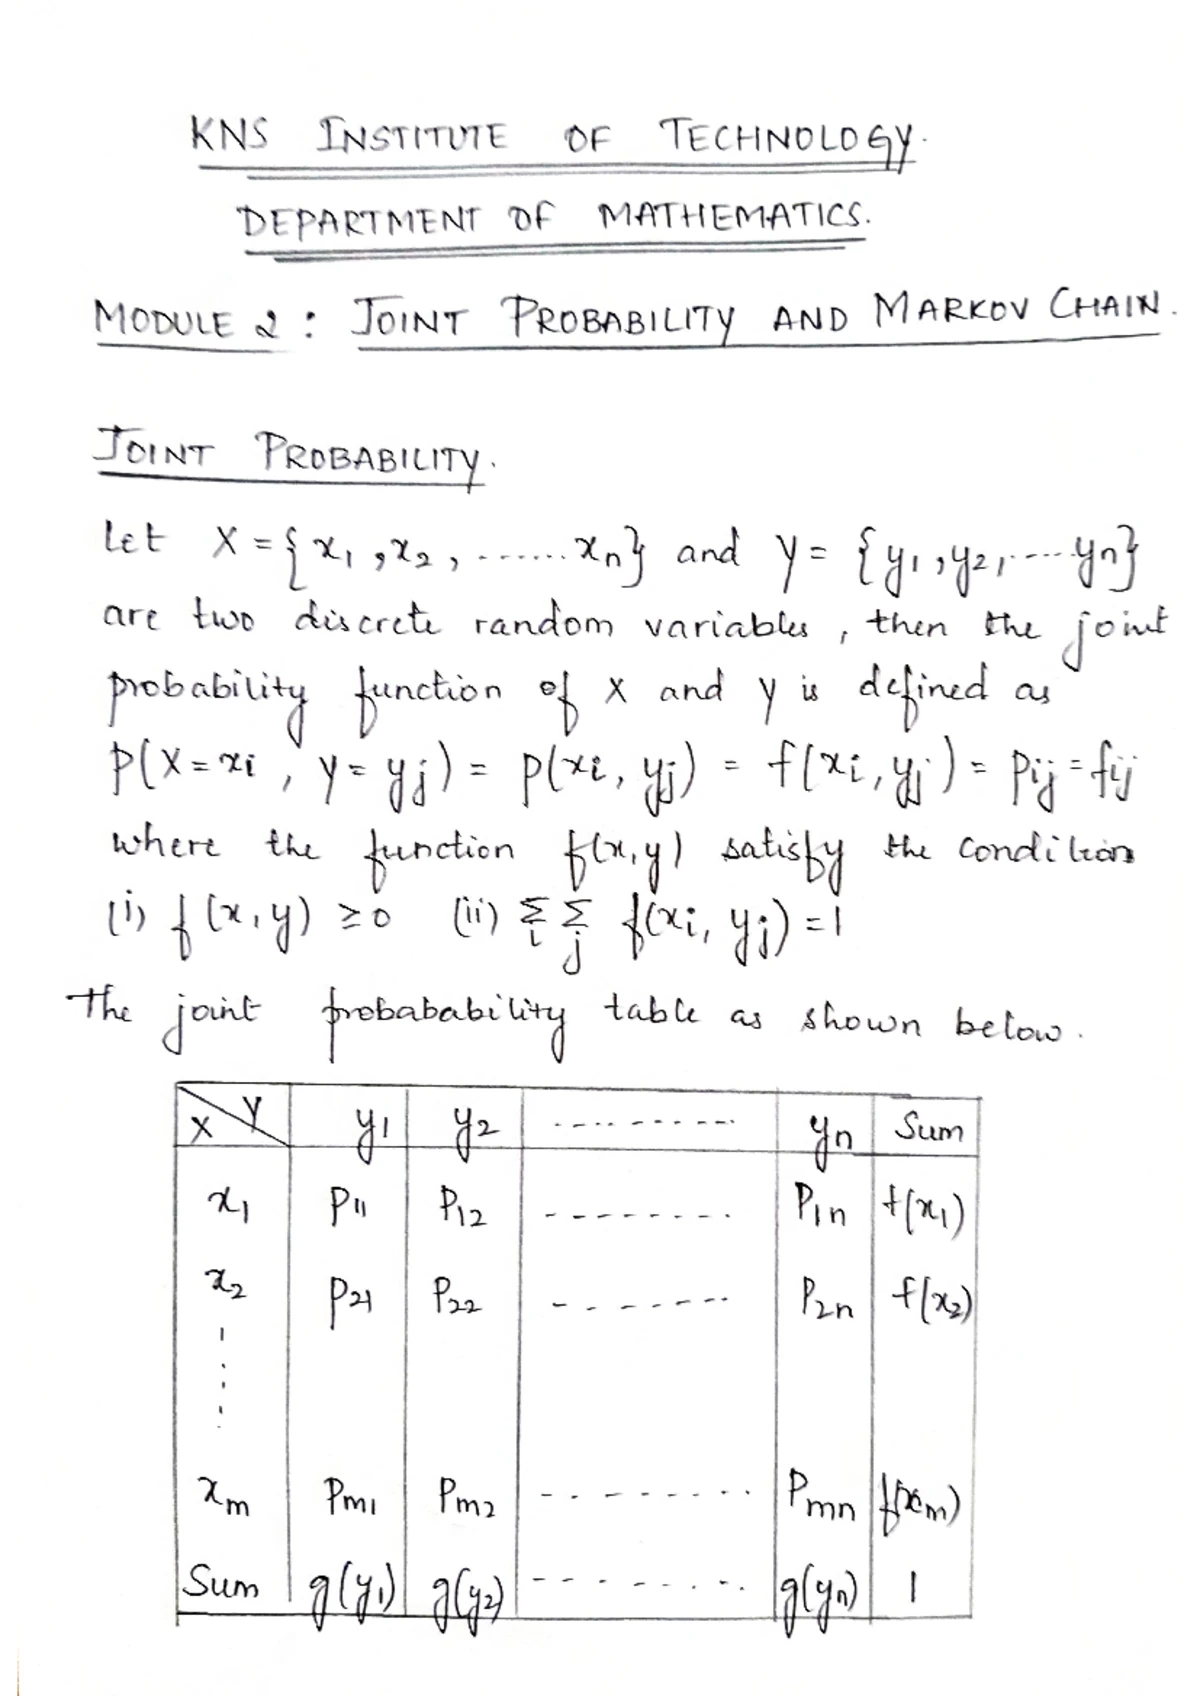 KNS INSTITUTE OF TECHNOLOGY.
DEPARTMENT OF MATHEMATICS.
MODULE 2 : JOINT PROBABILITY AND MARKOV CHAIN.
JOINT PROBABILITY.
Let X = {x1, x2, ....... xn} and y = {y1, y2, .... yn}
are two discrete random variables, then the joint
probability function of X and y is defined as
P(X = xi, y = yj) = p(xi, yj) = f(xi, yj) = Pij = fij
where the function f(x,y) satisfy the condition
(i) f(x,y) ≥ 0 (ii) Σi Σj f(xi, yj) = 1
The joint probabability table as shown below.
X Y y1 y2 ........... yn Sum
x1 P11 P12 --------- P1n f(x1)
x2 P21 P22 --------- P2n f(x2)
xm Pm1 Pm2 --------- Pmn f(xm)
Sum g(y1) g(y2) --------- g(yn) 1